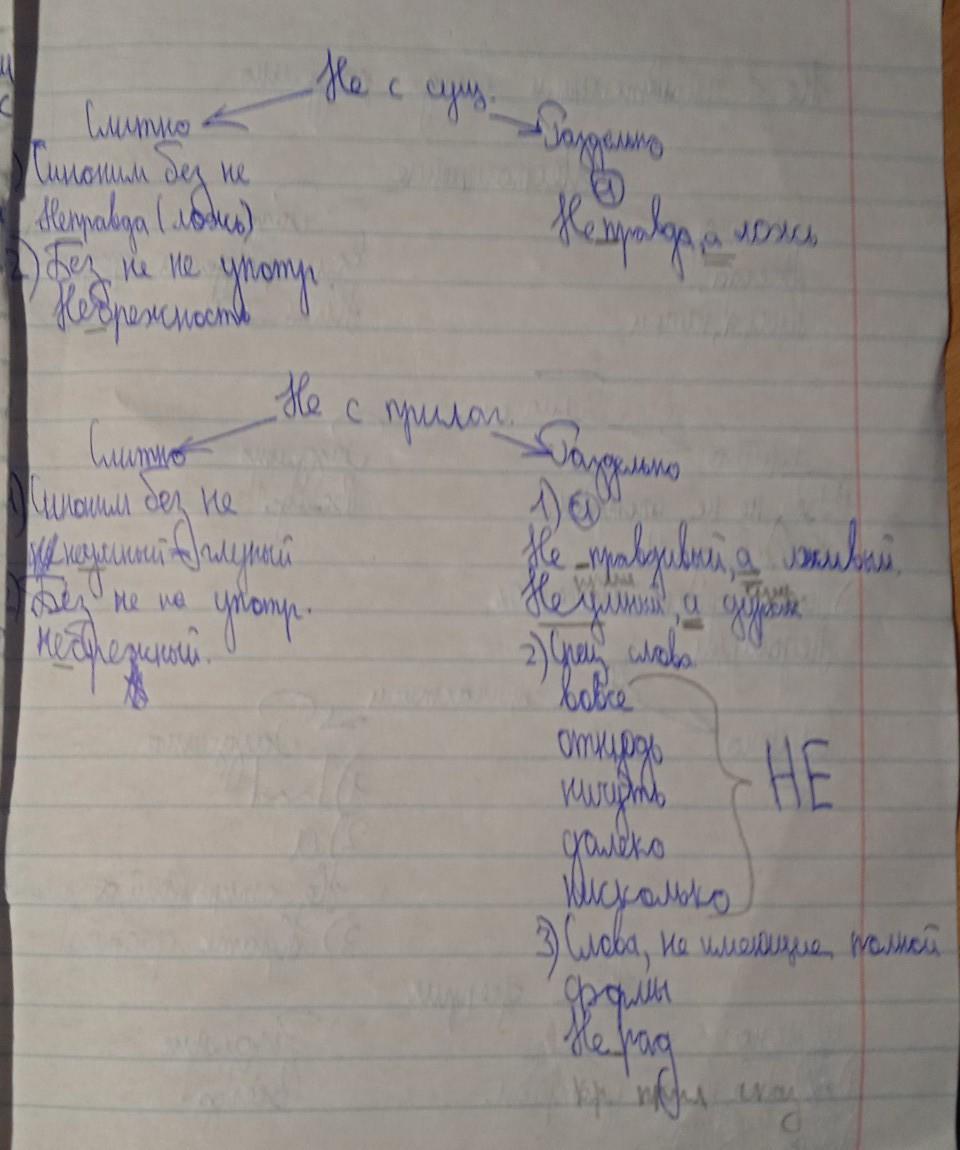 Не с сущ.
Слитно
Раздельно
1) Синоним без не
Неправда (ложь)
2) Без не не употр.
Небрежность
а
Не правда, а ложь
Не с прилаг.
Слитно
Раздельно
1) Синоним без не
неумный - глупый
2) Без не не употр.
небрежный.
1) а
Не правдивый, а лживый.
Не умный, а дурак
2) Спец слова
вовсе
отнюдь
ничуть
далеко
нисколько
НЕ
3) Слова, не имеющие полной
формы
Не рад
кр